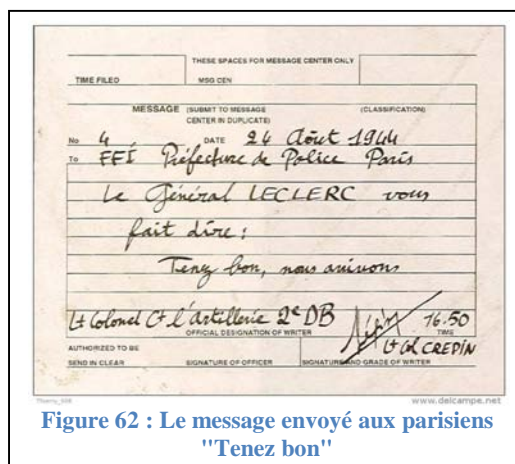 THESE SPACES FOR MESSAGE CENTER ONLY
TIME FILED MSG CEN
MESSAGE (SUBMIT TO MESSAGE CENTER IN DUPLICATE) (CLASSIFICATION)
No 4 DATE 24 Août 1944
To FFI Préfecture de Police Paris
Le Général LECLERC vous
fait dire :
Tenez bon, nous arrivons
Lt Colonel Ct l'artillerie 2e DB 16.50
OFFICIAL DESIGNATION OF WRITER TIME
Lt Col CREPIN
AUTHORIZED TO BE
SEND IN CLEAR SIGNATURE OF OFFICER SIGNATURE AND GRADE OF WRITER
www.delcampe.net
Figure 62 : Le message envoyé aux parisiens
"Tenez bon"